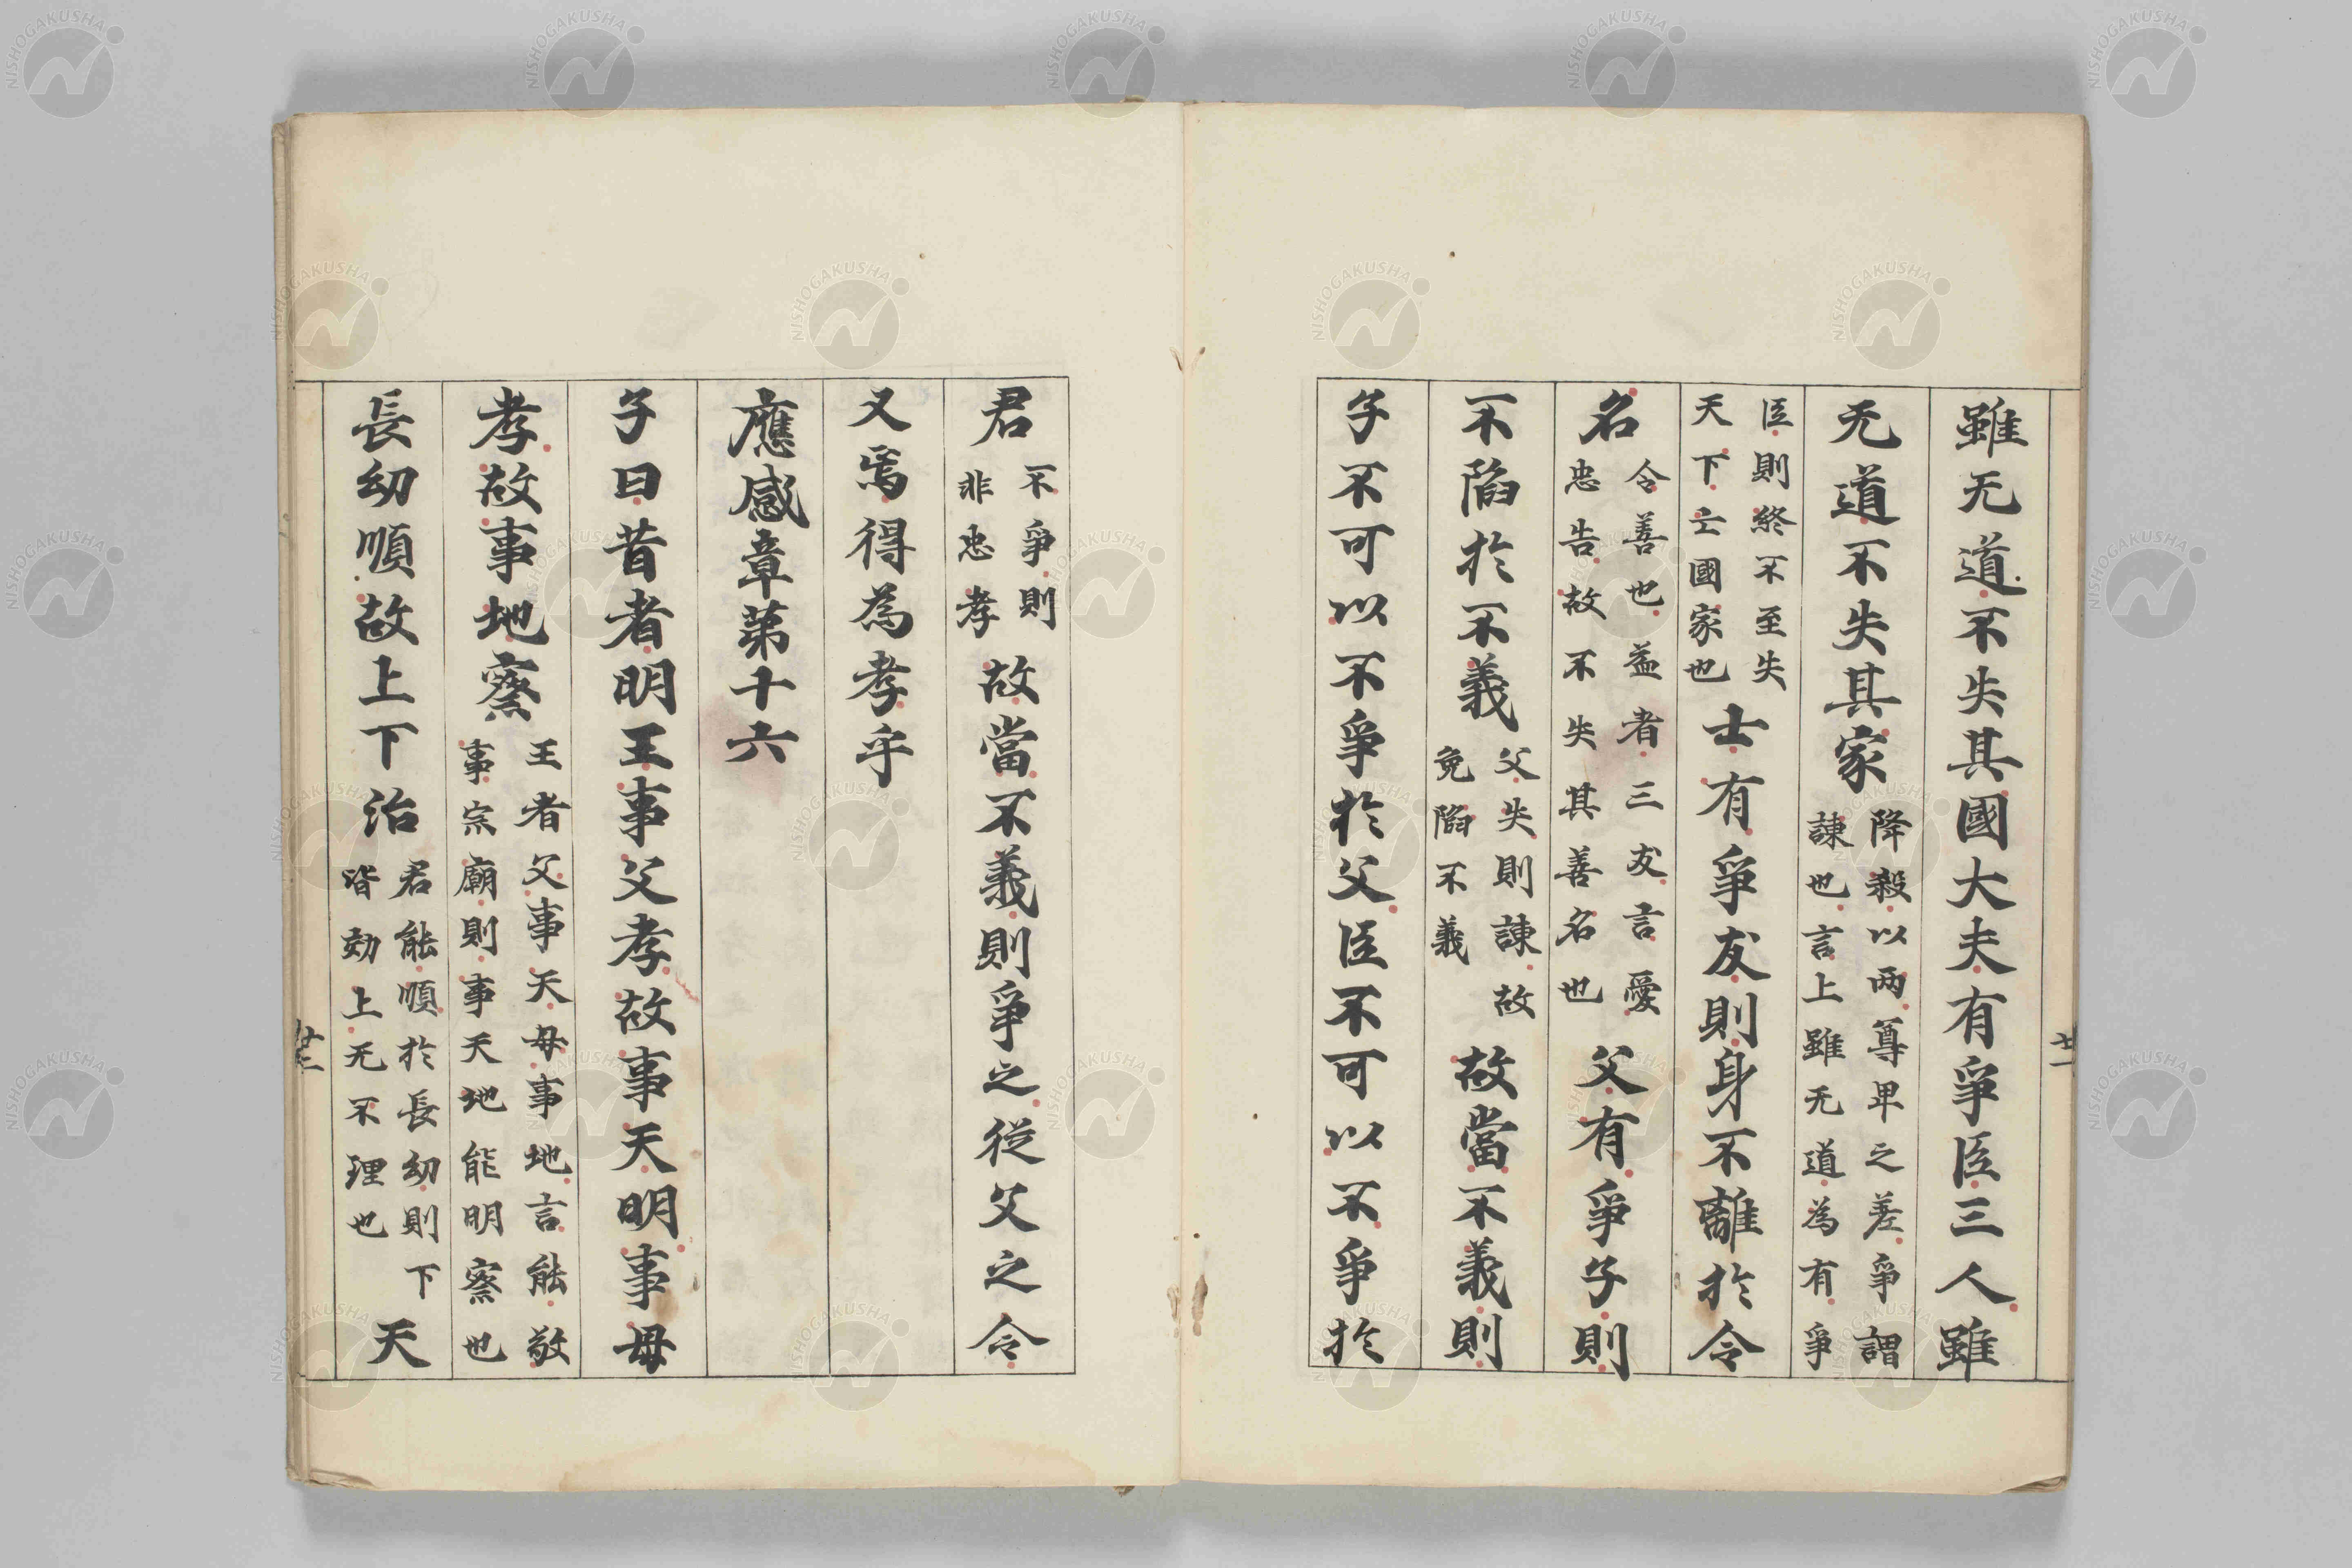 雖无道不失其國大夫有爭臣三人雖
无道不失其家
降殺以两尊卑之差爭謂
諫也言上雖无道為有爭
臣則終不至失
天下亡國家也
士有爭友則身不離於令
名
令善也益者三友言愛
忠告故不失其善名也
父有爭子則
不陷於不義
父失則諫故
免陷不義
故當不義則
子不可以不爭於父臣不可以不爭於
君
不爭則
非忠孝
故當不義則爭之從父之令
又焉得為孝乎
應感章第十六
子曰昔者明王事父孝故事天明事母
孝故事地察
王者父事天母事地言能敬
事宗廟則事天地能明察也
長幼順故上下治
君能順於長幼則下
皆効上无不理也
天
廿一
NISHOGAKUSHA